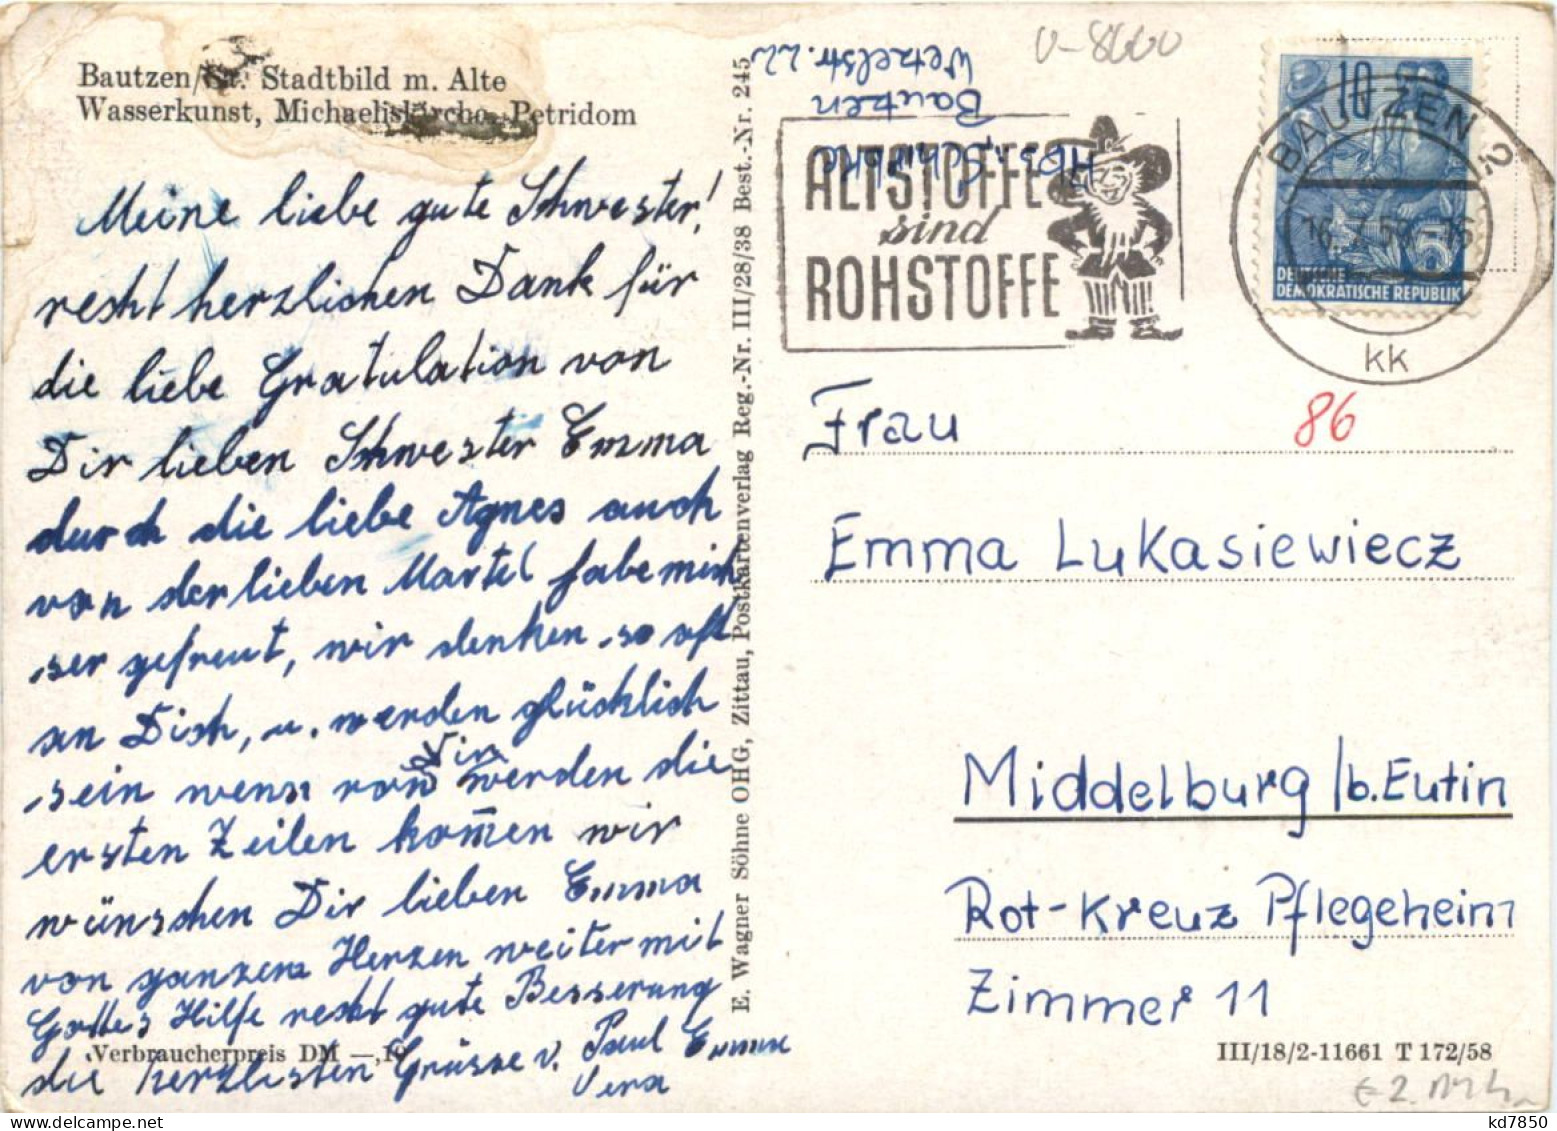 Bautzen/Sa. Stadtbild m. Alte
Wasserkunst, Michaeliskirche, Petridom
Meine liebe gute Schwester!
recht herzlichen Dank für
die liebe Gratulation von
Dir lieben Schwester Emma
durch die liebe Agnes auch
von der lieben Martel habe mich
ser gefreut, wir denken so oft
an Dich, u. werden glücklich
sein wenn von Dir werden die
ersten Zeilen kom̄en wir
wünschen Dir lieben Emma
von ganzem Herzen weiter mit
Gottes Hilfe recht gute Besserung
die herzlisten Grüsse v. Paul Emma
Vera
Verbraucherpreis DM —,10
E. Wagner Söhne OHG, Zittau, Postkartenverlag Reg.-Nr. III/28/38 Best.-Nr. 245
Abs. Schubke
Bautzen
Wetzelstr. 22
V-8600
ALTSTOFFE
sind
ROHSTOFFE
BAUTZEN 2
kk
10
5
DEUTSCHE
DEMOKRATISCHE REPUBLIK
86
Frau
Emma Lukasiewiecz
Middelburg /b. Eutin
Rot-Kreuz Pflegeheim
Zimmer 11
III/18/2-11661 T 172/58
kd7850